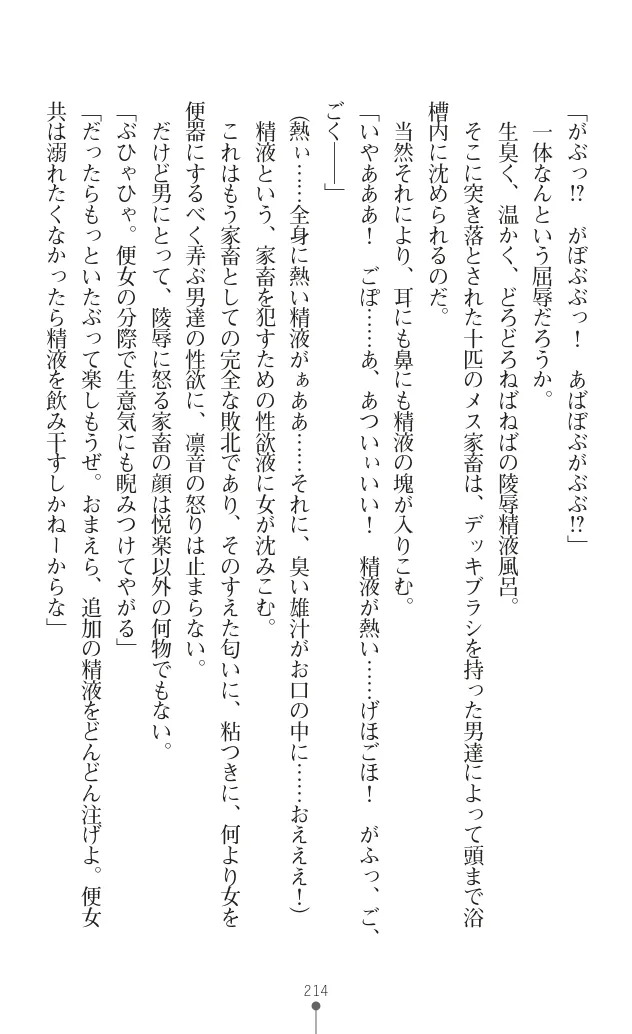 「がぶっ!?　がぼぶぶっ！　あばぼぶがぶぶ!?」
一体なんという屈辱だろうか。
生臭く、温かく、どろどろねばねばの陵辱精液風呂。
そこに突き落とされた十匹のメス家畜は、デッキブラシを持った男達によって頭まで浴
槽内に沈められるのだ。
当然それにより、耳にも鼻にも精液の塊が入りこむ。
「いやぁああ！　ごぽ……あ、あついぃいい！　精液が熱い……げほごほ！　がふっ、ご、
ごく――」
（熱ぃ……全身に熱い精液がぁああ……それに、臭い雄汁がお口の中に……おえええ！）
精液という、家畜を犯すための性欲液に女が沈みこむ。
これはもう家畜としての完全な敗北であり、そのすえた匂いに、粘つきに、何より女を
便器にするべく弄ぶ男達の性欲に、凛音の怒りは止まらない。
だけど男にとって、陵辱に怒る家畜の顔は悦楽以外の何物でもない。
「ぶひゃひゃ。便女の分際で生意気にも睨みつけてやがる」
「だったらもっといたぶって楽しもうぜ。おまえら、追加の精液をどんどん注げよ。便女
共は溺れたくなかったら精液を飲み干すしかねーからな」
214